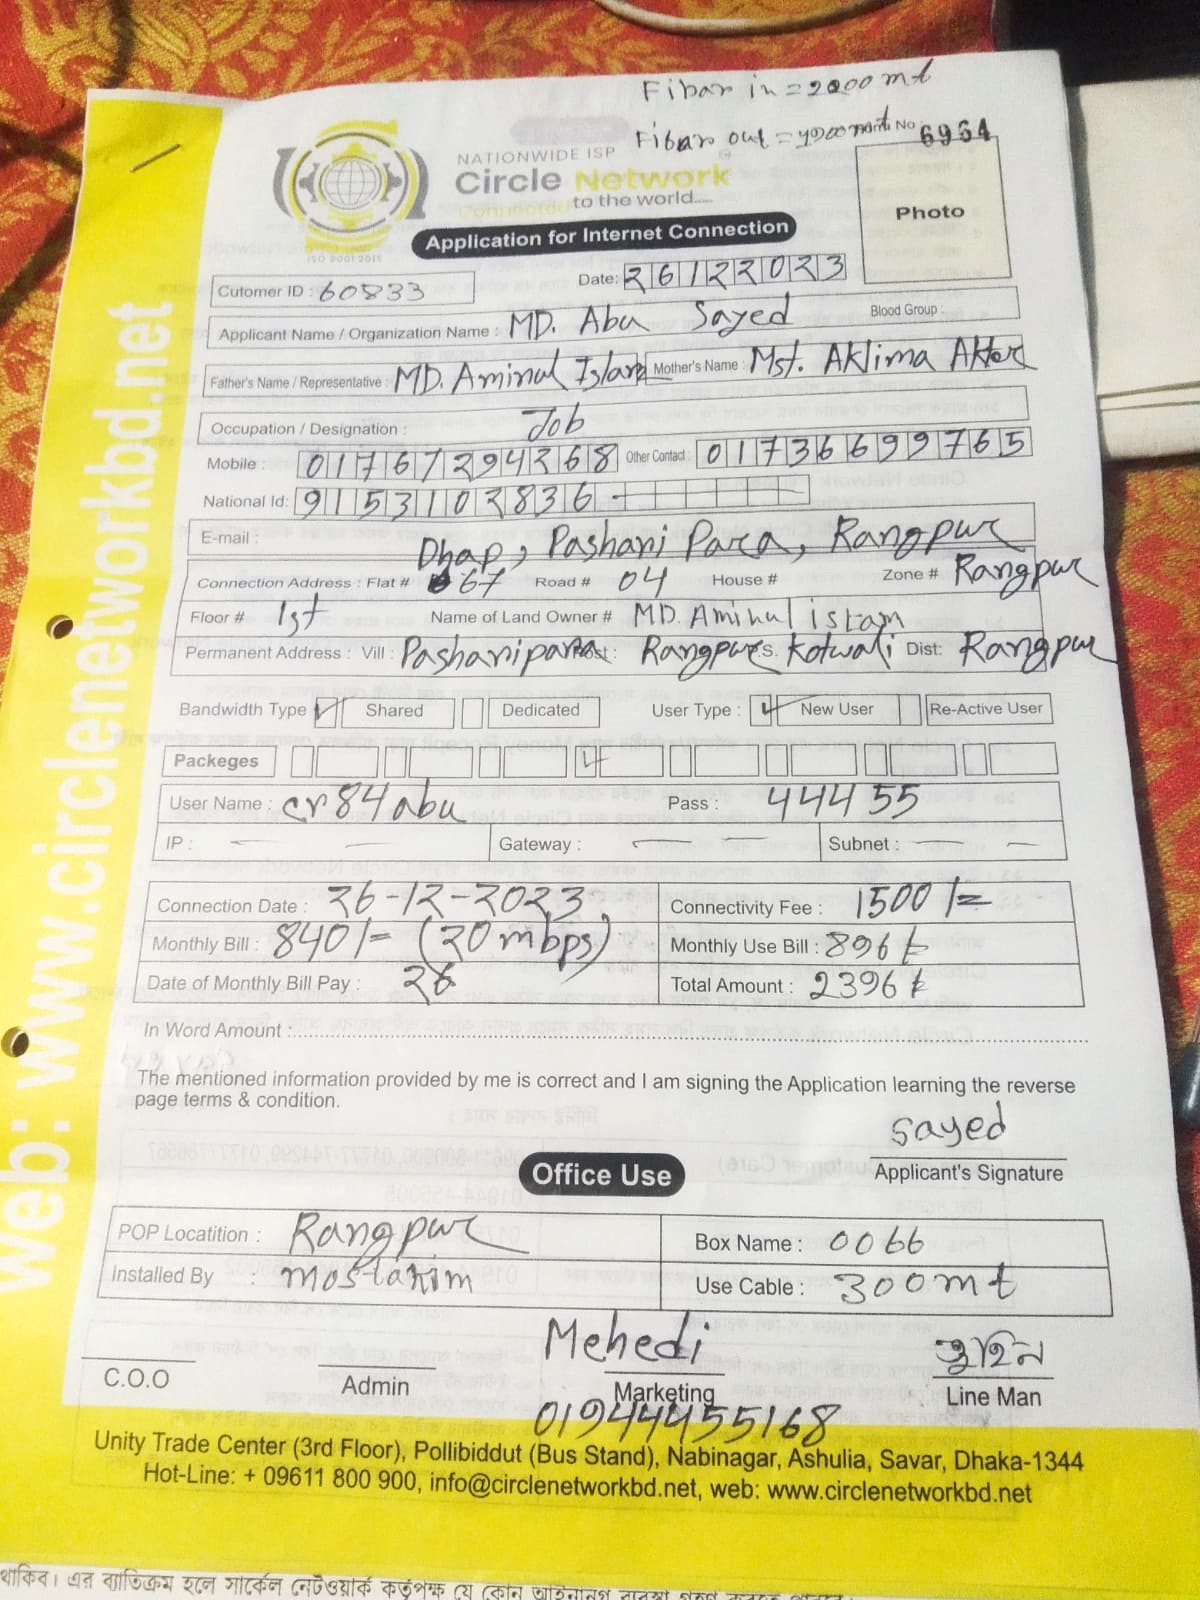 Fibar in = 2000 mt
Fibar out = 4000 mt No 6964
NATIONWIDE ISP
Circle Network
Connected to the world.....
ISO 9001:2015
Photo
Application for Internet Connection
Date: 26122023
Cutomer ID : 60833
Applicant Name / Organization Name : MD. Abu Sayed Blood Group :
Father's Name / Representative : MD. Aminul Islam Mother's Name : Mst. Aklima Akter
Occupation / Designation : Job
Mobile : 01767294268 Other Contact : 01736699765
National Id: 9153102836
E-mail :
Dhap, Pashari Para, Rangpur
Connection Address : Flat # 67 Road # 04 House # Zone # Rangpur
Floor # 1st Name of Land Owner # MD. Aminul islam
Permanent Address : Vill : Pashanipara Post : Rangpur P.S. Kotwali Dist: Rangpur
Bandwidth Type Shared Dedicated User Type : New User Re-Active User
Packeges
User Name : cr84abu Pass : 44455
IP : Gateway : Subnet :
Connection Date : 26-12-2023 Connectivity Fee : 1500/=
Monthly Bill : 840/= (20mbps) Monthly Use Bill : 896/=
Date of Monthly Bill Pay : 26 Total Amount : 2396/=
In Word Amount :
The mentioned information provided by me is correct and I am signing the Application learning the reverse
page terms & condition.
sayed
Applicant's Signature
Office Use
POP Locatition : Rangpur Box Name : 0066
Installed By : mostakim Use Cable : 300mt
Mehedi তুহিন
C.O.O Admin Marketing Line Man
01944455168
Unity Trade Center (3rd Floor), Pollibiddut (Bus Stand), Nabinagar, Ashulia, Savar, Dhaka-1344
Hot-Line: + 09611 800 900, info@circlenetworkbd.net, web: www.circlenetworkbd.net
web: www.circlenetworkbd.net
থাকিব। এর ব্যতিক্রম হলে সার্কেল নেটওয়ার্ক কর্তৃপক্ষ যে কোন